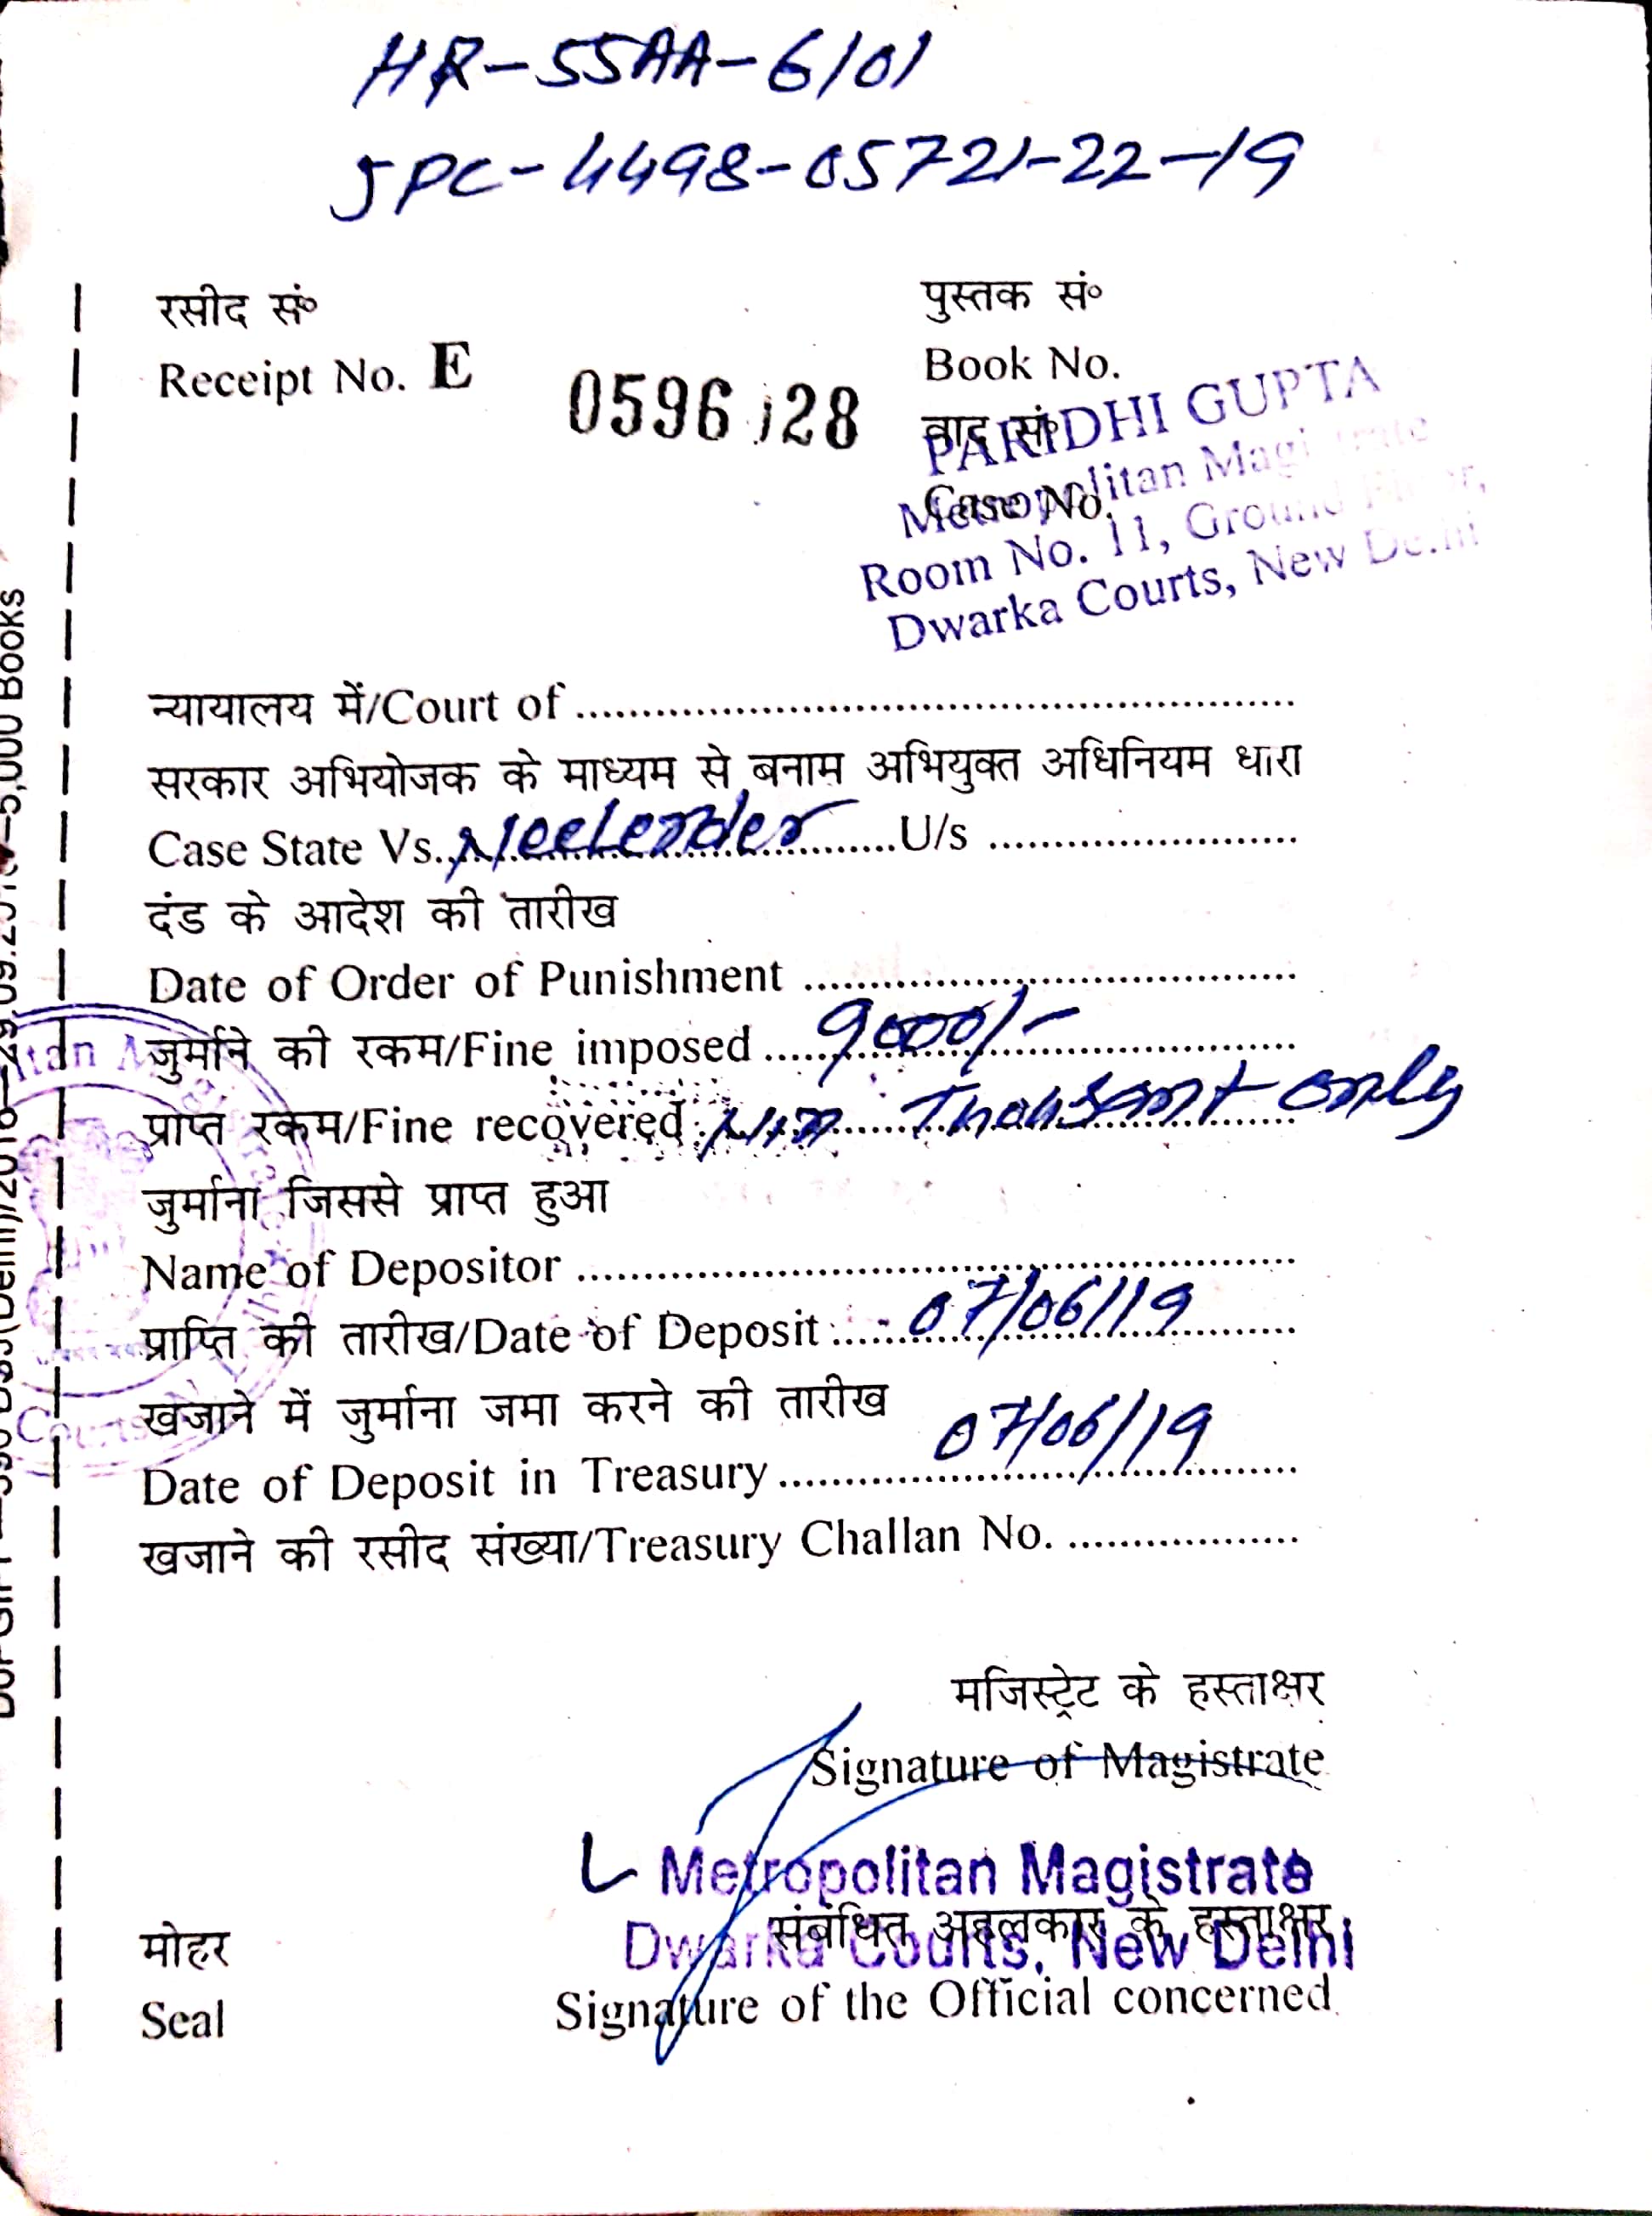 HR-55AA-6101
JPC-4498-05721-22-19
रसीद सं॰
Receipt No. E 0596128
पुस्तक सं॰
Book No.
वाद सं॰
Case No.
PARIDHI GUPTA
Metropolitan Magistrate
Room No. 11, Ground Floor,
Dwarka Courts, New Delhi
न्यायालय में/Court of
सरकार अभियोजक के माध्यम से बनाम अभियुक्त अधिनियम धारा
Case State Vs. U/s
दंड के आदेश की तारीख
Date of Order of Punishment
जुर्माने की रकम/Fine imposed 9000/-
प्राप्त रकम/Fine recovered only
जुर्माना जिससे प्राप्त हुआ
Name of Depositor
प्राप्ति की तारीख/Date of Deposit 07/06/19
खजाने में जुर्माना जमा करने की तारीख 07/06/19
Date of Deposit in Treasury
खजाने की रसीद संख्या/Treasury Challan No.
मजिस्ट्रेट के हस्ताक्षर
Signature of Magistrate
Metropolitan Magistrate
संबंधित अहलकार के हस्ताक्षर
Dwarka Courts, New Delhi
मोहर
Seal
Signature of the Official concerned
5,000 Books